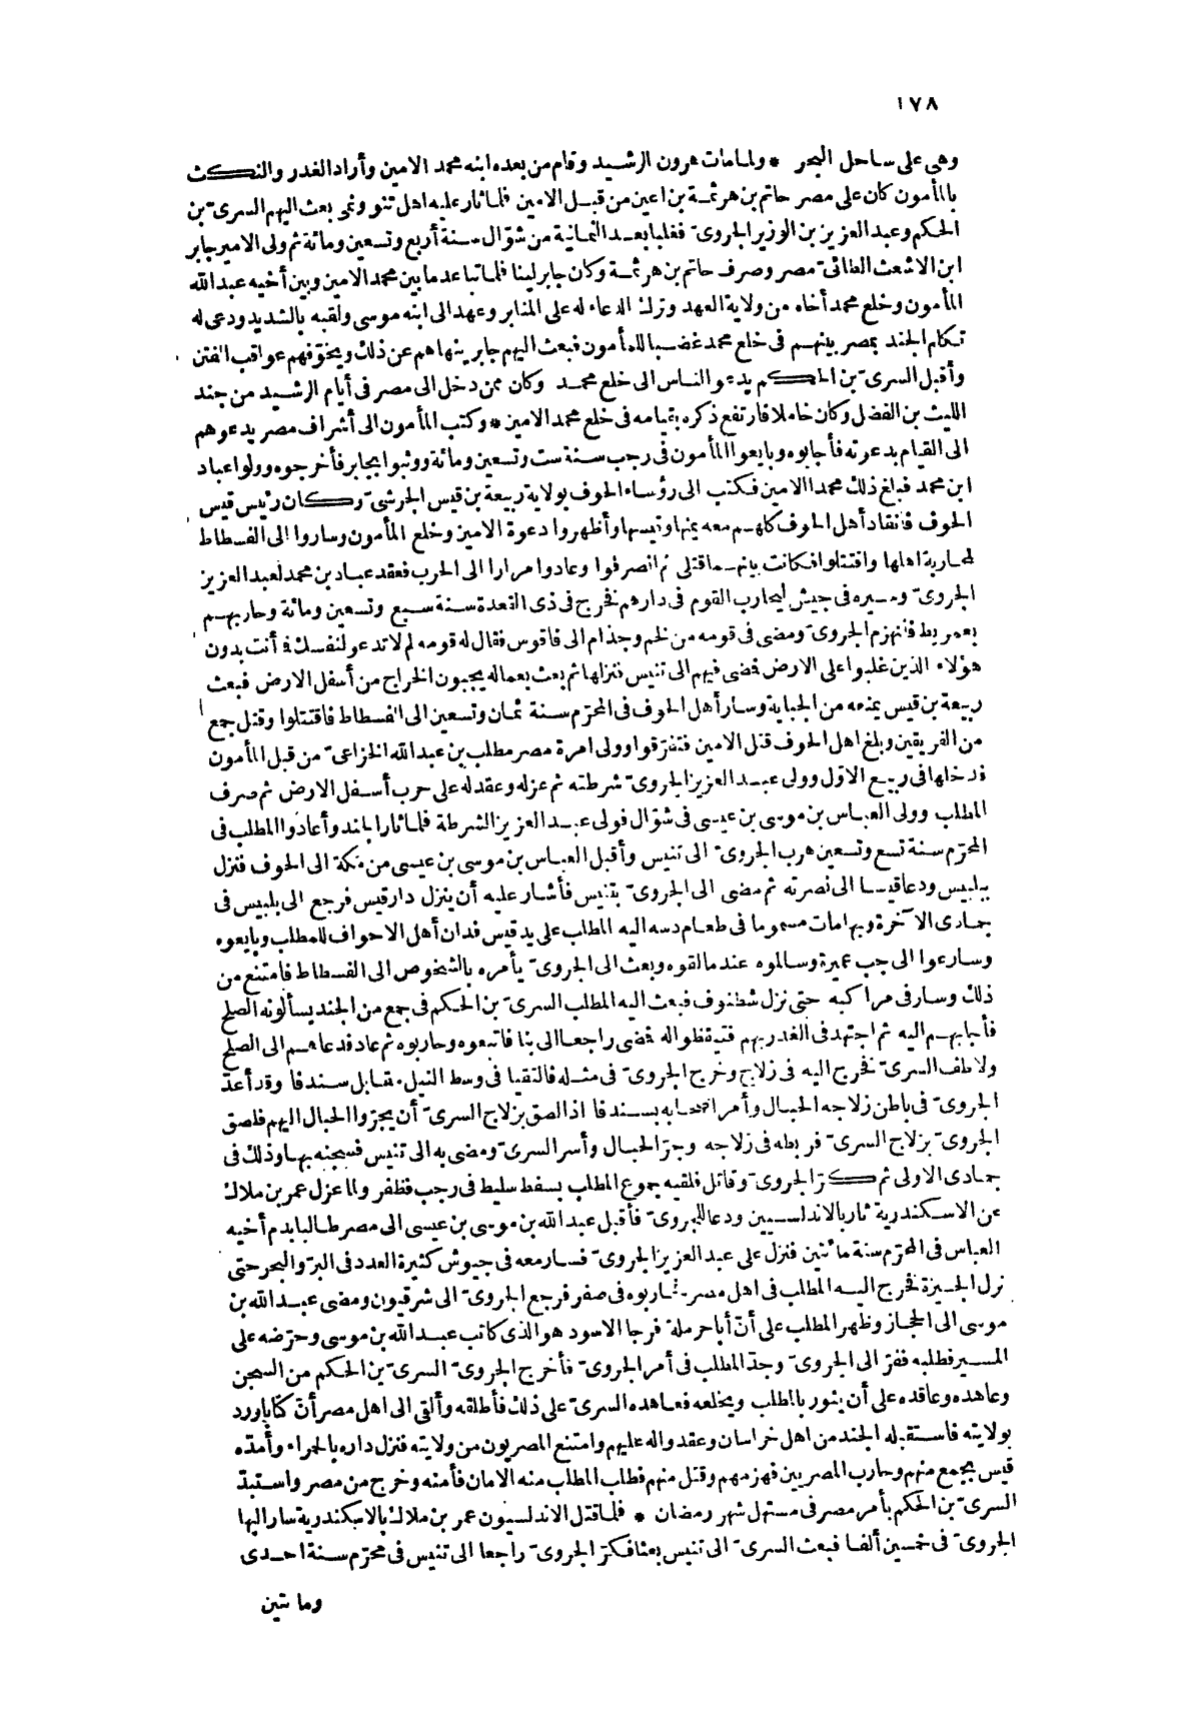 ١٧٨
وهى على ساحل البحر * ولما مات هرون الرشيد وقام من بعده ابنه محمد الامين وأراد الغدر والنكث
بالمأمون كان على مصر حاتم بن هرثمة بن اعين من قبل الامين فلما ثار عليه اهل تنو ونمى بعث اليهم السرى بن
الحكم وعبد العزيز بن الوزير الجروى فغلبا بعد الثمانية من شوّال سنة أربع وتسعين ومائة ثم ولى الامير جابر
ابن الاشعث الطائى مصر وصرف حاتم بن هرثمة وكان جابر لينا فلما تباعد ما بين محمد الامين وبين أخيه عبد الله
المأمون وخلع محمد أخاه من ولاية العهد وترك الدعاء له على المنابر وعهد الى ابنه موسى ولقبه بالشديد ودعى له
تكلم الجند بمصر بينهم فى خلع محمد غضبا للمأمون فبعث اليهم جابر ينهاهم عن ذلك ويخوّفهم عواقب الفتن
وأقبل السرىّ بن الحكم يدعو الناس الى خلع محمد وكان ممن دخل الى مصر فى أيام الرشيد من جند
الليث بن الفضل وكان خاملا فارتفع ذكره بقيامه فى خلع محمد الامين * وكتب المأمون الى أشراف مصر يدعوهم
الى القيام بدعوته فأجابوه وبايعوا المأمون فى رجب سنة ست وتسعين ومائة ووثبوا بجابر فأخرجوه وولوا عباد
ابن محمد فبلغ ذلك محمدا الامين فكتب الى رؤساء الحوف بولاية ربيعة بن قيس الجرشىّ وكان رئيس قيس
الحوف فانقاد أهل الحوف كلهم معه يمنها وقيسها وأظهروا دعوة الامين وخلع المأمون وساروا الى الفسطاط
لمحاربة اهلها واقتتلوا فكانت بينهما قتلى ثم انصرفوا وعادوا مرارا الى الحرب فعقد عباد بن محمد لعبد العزيز
الجروىّ وسيره فى جيش ليحارب القوم فى دارهم فخرج فى ذى القعدة سنة سبع وتسعين ومائة وحاربهم
بعمريط فانهزم الجروىّ ومضى فى قومه من لخم وجذام الى فاقوس فقال له قومه لم لا تدعو لنفسك فما أنت بدون
هؤلاء الذين غلبوا على الارض فمضى فيهم الى تنيس فنزلها ثم بعث بعماله يجبون الخراج من أسفل الارض فبعث
ربيعة بن قيس يمنعه من الجباية وسار أهل الحوف فى المحرّم سنة ثمان وتسعين الى الفسطاط فاقتتلوا وقتل جمع
من الفريقين وبلغ اهل الحوف قتل الامين فتفرّقوا وولى امرة مصر مطلب بن عبد الله الخزاعىّ من قبل المأمون
فدخلها فى ربيع الاوّل وولى عبد العزيز الجروىّ شرطته ثم عزله وعقد له على حرب أسفل الارض ثم صرف
المطلب وولى العباس بن موسى بن عيسى فى شوّال فولى عبد العزيز الشرطة فلما ثار الجند وأعادوا المطلب فى
المحرّم سنة تسع وتسعين هرب الجروىّ الى تنيس وأقبل العباس بن موسى بن عيسى من مكة الى الحوف فنزل
بلبيس ودعا قيسا الى نصرته ثم مضى الى الجروىّ بتنيس فأشار عليه أن ينزل دار قيس فرجع الى بلبيس فى
جمادى الآخرة وبها مات مسموما فى طعام دسه اليه المطلب على يد قيس فدان أهل الاحواف للمطلب وبايعوه
وسارعوا الى جب عميرة وسالموه عندما لقوه وبعث الى الجروىّ يأمره بالشخوص الى الفسطاط فامتنع من
ذلك وسار فى مراكبه حتى نزل شطنوف فبعث اليه المطلب السرىّ بن الحكم فى جمع من الجند يسألونه الصلح
فأجابهم اليه ثم اجتهد فى الغدر بهم فتيقظوا له فمضى راجعا الى بنا فاتبعوه وحاربوه ثم عاد فدعاهم الى الصلح
ولاطف السرىّ فخرج اليه فى زلاج وخرج الجروىّ فى مثله فالتقيا فى وسط النيل مقابل سندفا وقد أعدّ
الجروىّ فى باطن زلاجه الحبال وأمر اصحابه بسندفا اذا لصق بزلاج السرىّ أن يجرّوا الحبال اليهم فلصق
الجروىّ بزلاج السرىّ فربطه فى زلاجه وجرّ الحبال وأسر السرىّ ومضى به الى تنيس فسجنه بها وذلك فى
جمادى الاولى ثم كرّ الجروىّ وقاتل فلقيه جموع المطلب بسفط سليط فى رجب فظفر ولما عزل عمر بن ملاك
عن الاسكندرية ثار بالاندلسيين ودعا للجروىّ فأقبل عبد الله بن موسى بن عيسى الى مصر طالبا بدم أخيه
العباس فى المحرّم سنة مائتين فنزل على عبد العزيز الجروىّ فسار معه فى جيوش كثيرة العدد فى البرّ والبحر حتى
نزل الجيزة فخرج اليه المطلب فى اهل مصر فحاربوه فى صفر فرجع الجروىّ الى شرقيون ومضى عبد الله بن
موسى الى الحجاز وظهر المطلب على أنّ أبا حرملة فرجا الاسود هو الذى كاتب عبد الله بن موسى وحرّضه على
المسير فطلبه ففرّ الى الجروىّ وجدّ المطلب فى أمر الجروىّ فأخرج الجروىّ السرىّ بن الحكم من السجن
وعاهده وعاقده على أن يثور بالمطلب ويخلعه فعاهده السرىّ على ذلك فأطلقه وألقى الى اهل مصر أنّ كتابا ورد
بولايته فاستقبله الجند من اهل خراسان وعقدوا له عليهم وامتنع المصريون من ولايته فنزل داره بالحمراء وأمدّه
قيس بجمع منهم وحارب المصريين فهزمهم وقتل منهم فطلب المطلب منه الامان فأمنه وخرج من مصر واستبدّ
السرىّ بن الحكم بأمر مصر فى مستهل شهر رمضان * فلما قتل الاندلسيون عمر بن ملاك بالاسكندرية سار اليها
الجروىّ فى خمسين ألفا فبعث السرىّ الى تنيس بعثا فكرّ الجروىّ راجعا الى تنيس فى محرّم سنة احدى
ومائتين